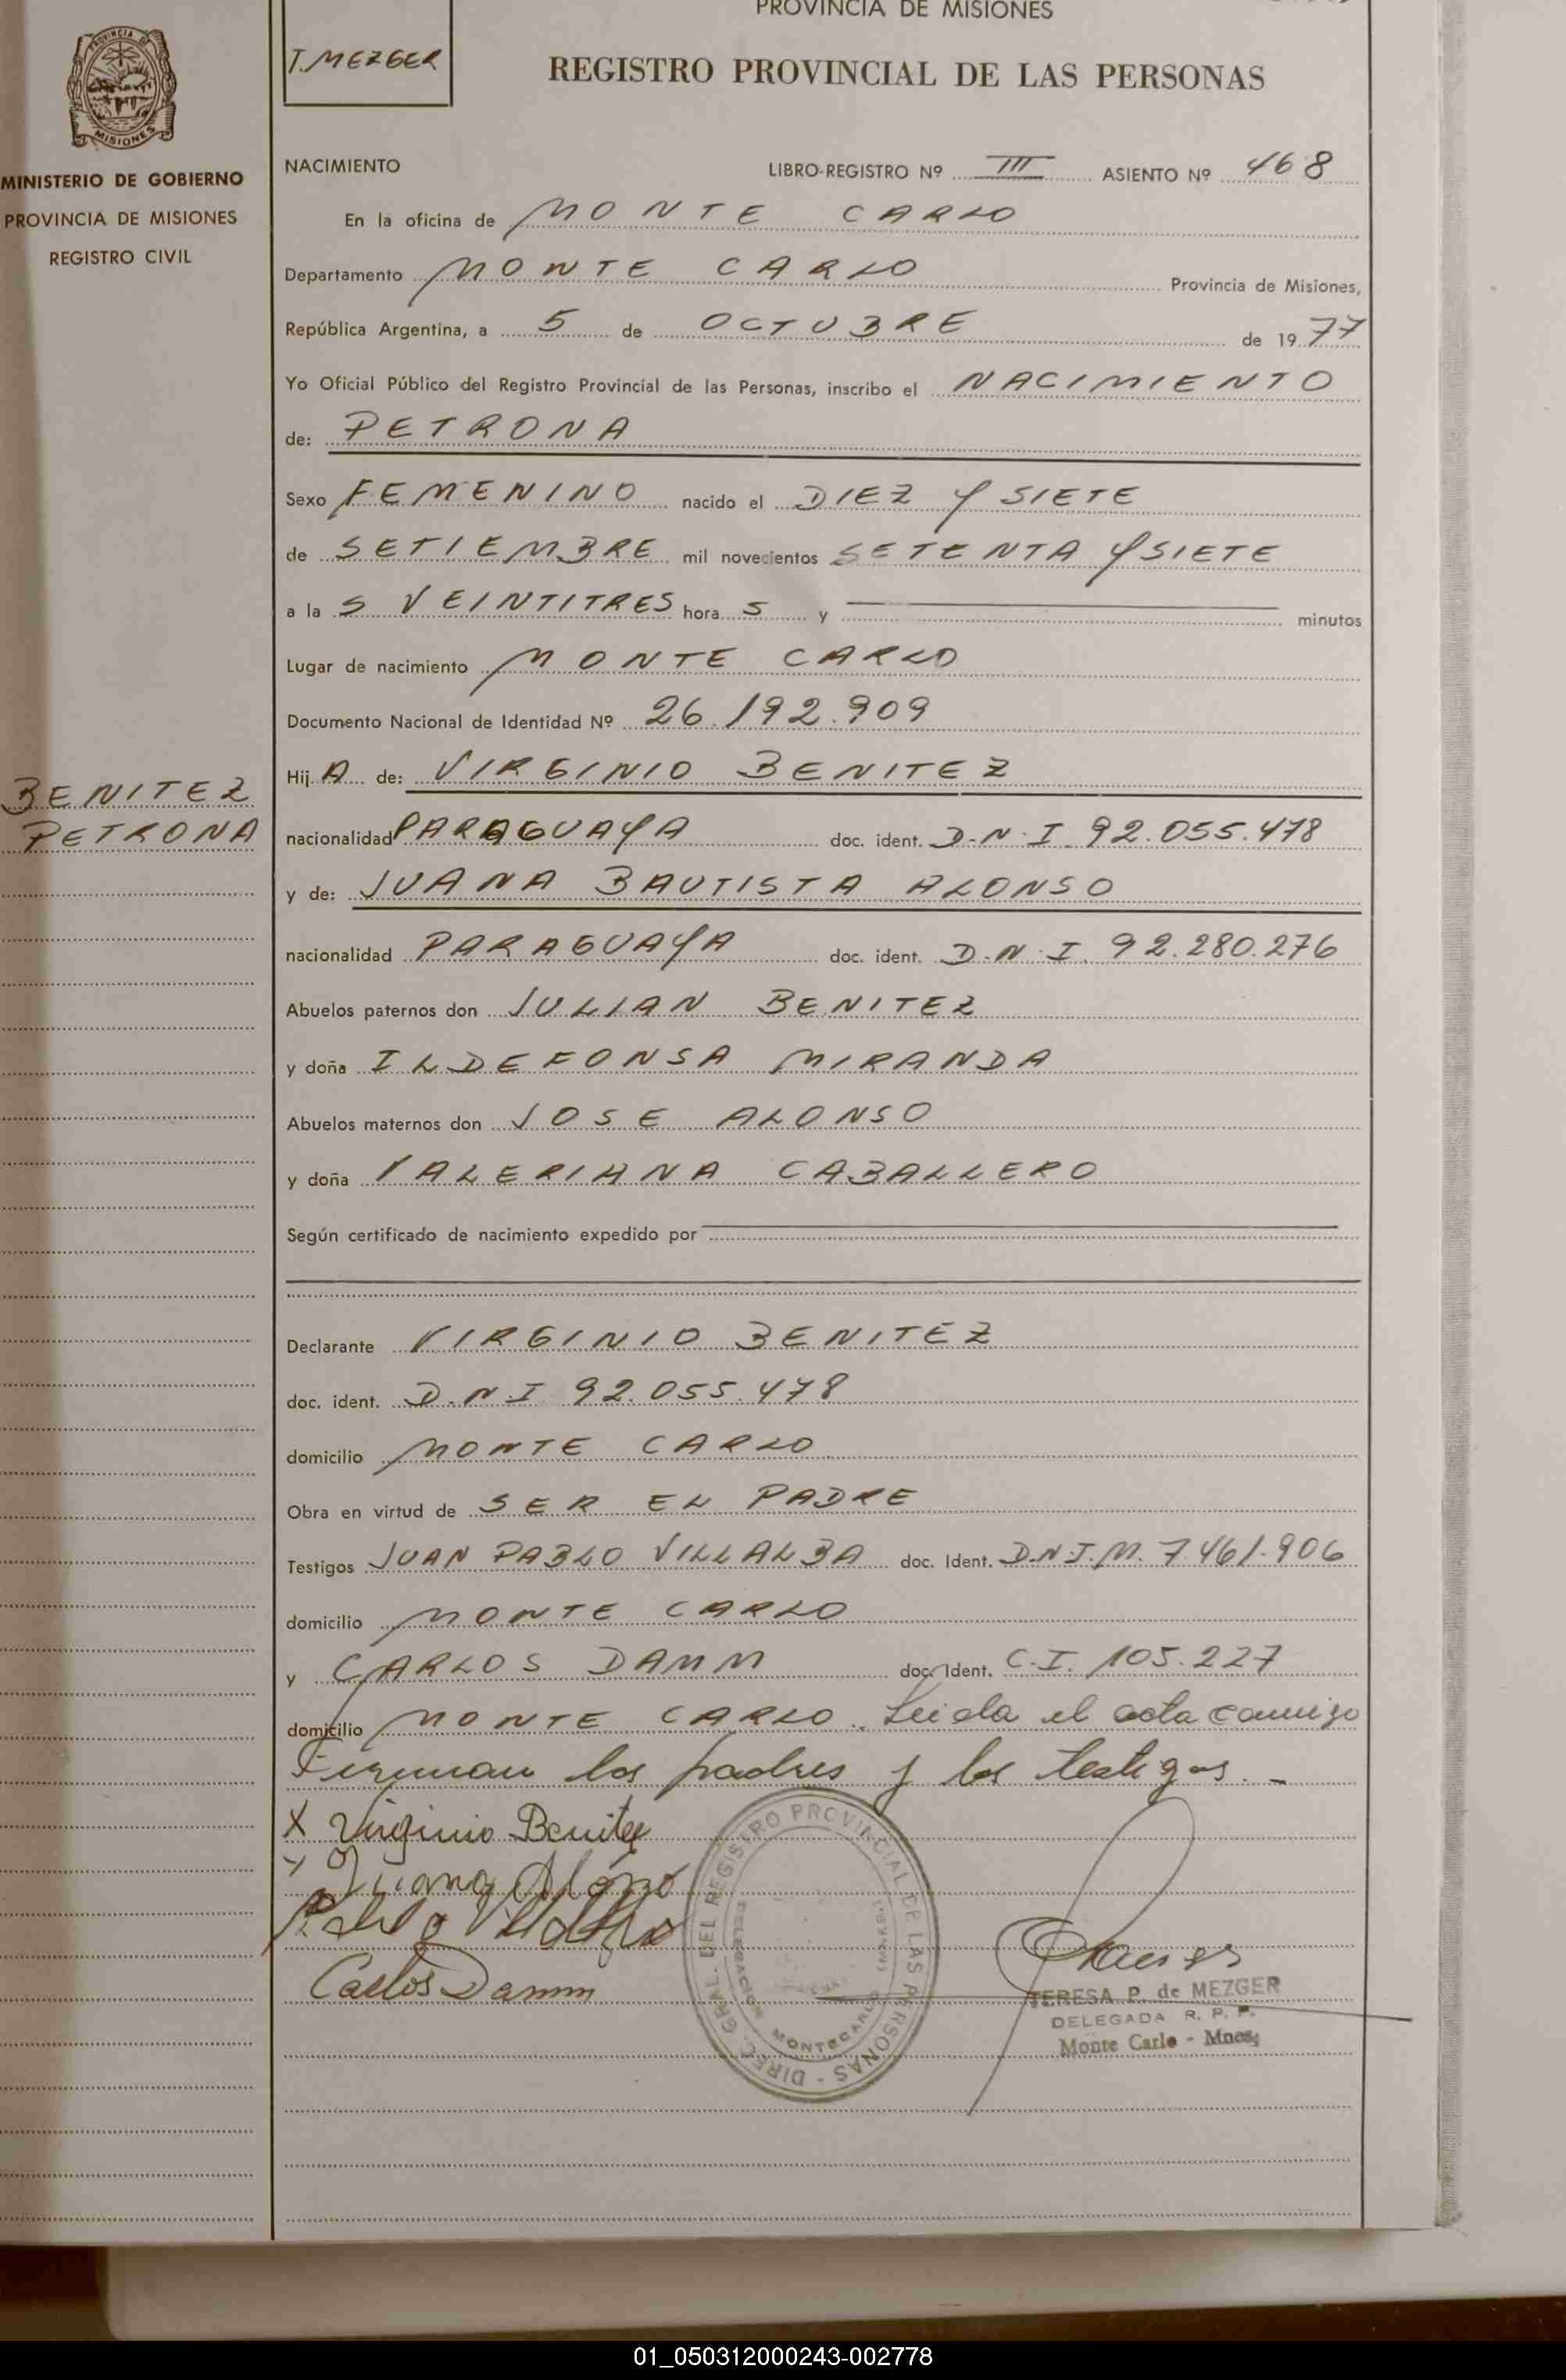 PROVINCIA DE MISIONES
T. MEZGER
REGISTRO PROVINCIAL DE LAS PERSONAS
MISIONES
MINISTERIO DE GOBIERNO
PROVINCIA DE MISIONES
REGISTRO CIVIL
NACIMIENTO LIBRO-REGISTRO Nº III ASIENTO Nº 468
En la oficina de MONTE CARLO
Departamento MONTE CARLO Provincia de Misiones,
República Argentina, a 5 de OCTUBRE de 1977
Yo Oficial Público del Registro Provincial de las Personas, inscribo el NACIMIENTO
de: PETRONA
Sexo FEMENINO nacido el DIEZ Y SIETE
de SETIEMBRE mil novecientos SETENTA Y SIETE
a la S VEINTITRES hora S y minutos
Lugar de nacimiento MONTE CARLO
Documento Nacional de Identidad Nº 26.192.909
Hij A de: VIRGINIO BENITEZ
BENITEZ
PETRONA
nacionalidad PARAGUAYA doc. ident. D.N.I 92.055.478
y de: JUANA BAUTISTA ALONSO
nacionalidad PARAGUAYA doc. ident. D.N.I. 92.280.276
Abuelos paternos don JULIAN BENITEZ
y doña ILDEFONSA MIRANDA
Abuelos maternos don JOSE ALONSO
y doña VALERIANA CABALLERO
Según certificado de nacimiento expedido por
Declarante VIRGINIO BENITEZ
doc. ident. D.N.I 92.055.478
domicilio MONTE CARLO
Obra en virtud de SER EL PADRE
Testigos JUAN PABLO VILLALBA doc. Ident. D.N.I.M. 7.461.906
domicilio MONTE CARLO
y CARLOS DAMM doc. Ident. C.I. 105.227
domicilio MONTE CARLO. Leida el acta conmigo
Firman los padres y los testigos.-
X Virginio Benitez
Juana Alonso
Pablo Villalba
Carlos Damm
DIREC. GRAL. DEL REGISTRO PROVINCIAL DE LAS PERSONAS
DELEGACION MONTECARLO (MISIONES)
TERESA P. de MEZGER
DELEGADA R. P. P.
Monte Carlo - Mnes.
01_050312000243-002778